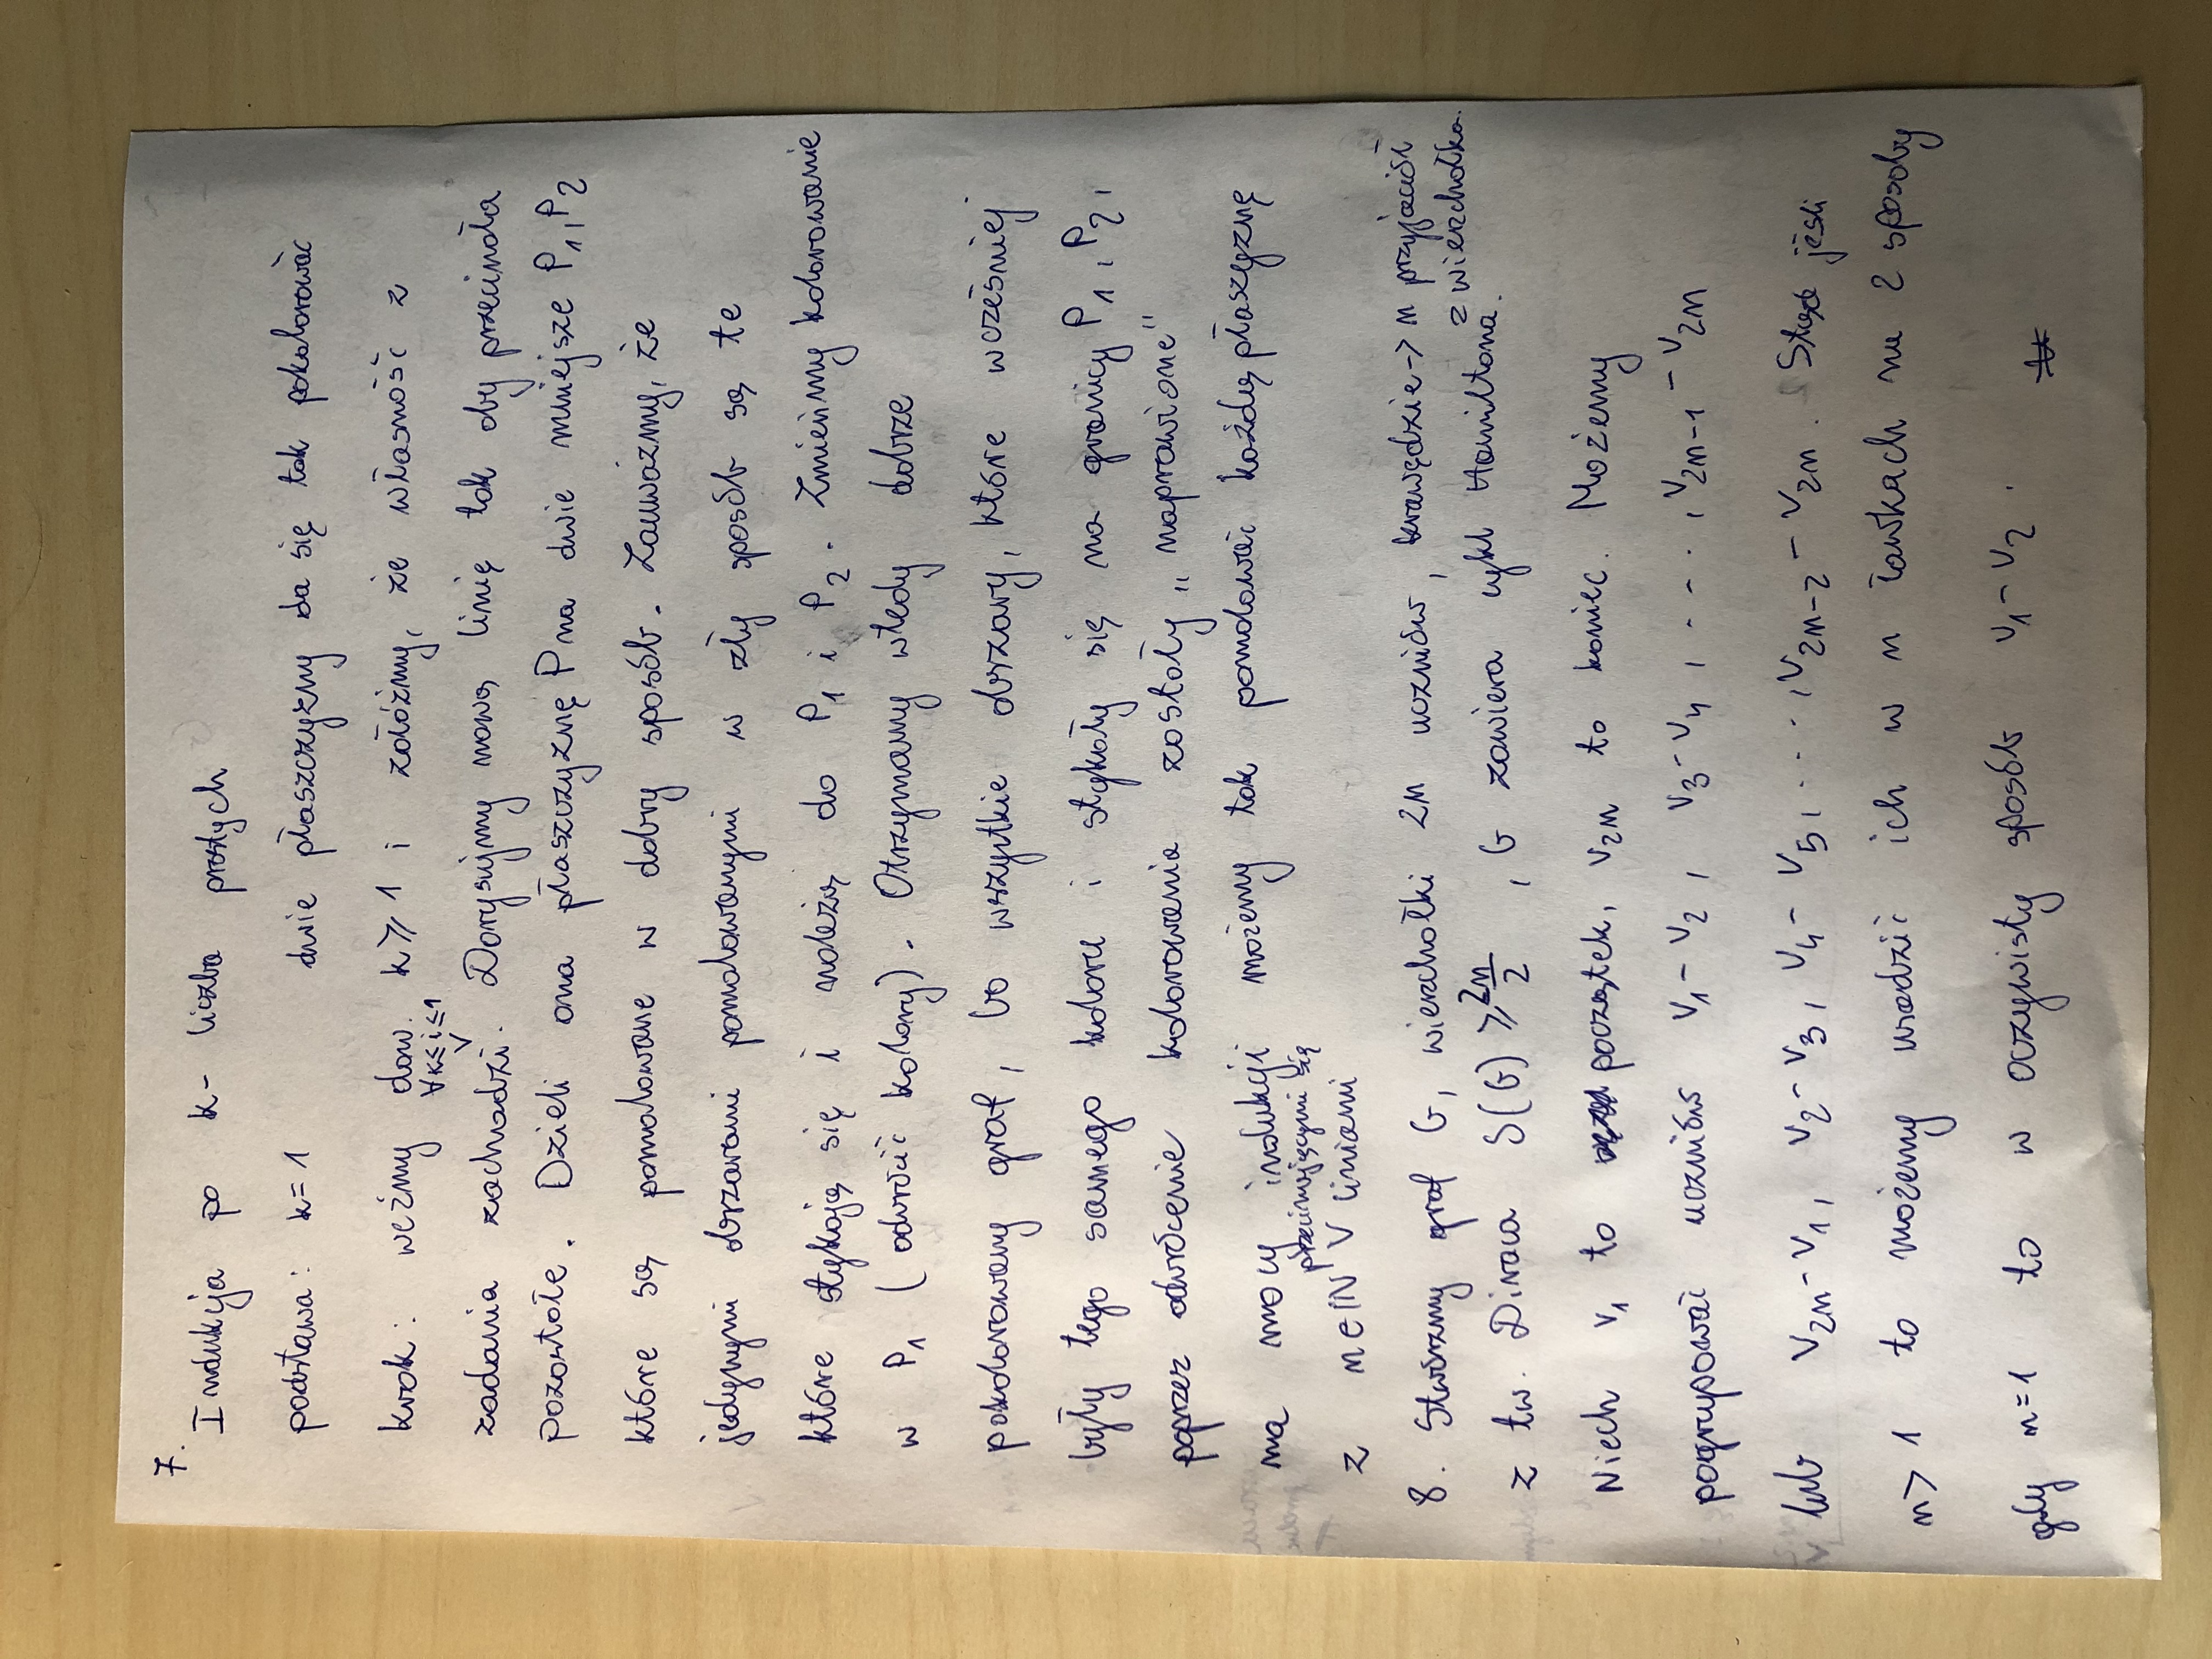 7.
Indukcja po k - liczba prostych
podstawa: k=1 dwie płaszczyzny da się tak pokolorować
krok: weźmy dow. k ≥ 1 i załóżmy, że własność z
∀ k≤i≤1
zadania zachodzi ∨. Dorysujmy nową linię tak aby przecinała
pozostałe. Dzieli ona płaszczyznę P na dwie mniejsze P₁, P₂
które są pomalowane w dobry sposób. Zauważmy, że
jedynymi obszarami pomalowanymi w zły sposób są te
które stykają się i należą do P₁ i P₂. Zmieńmy kolorowanie
w P₁ (odwrócić kolory). Otrzymamy wtedy dobrze
pokolorowany graf, bo wszystkie obszary, które wcześniej
były tego samego koloru i stykały się na granicy P₁, P₂,
poprzez odwrócenie kolorowania zostały „naprawione"
na mocy indukcji możemy tak pomalować każdą płaszyznę
przecinającymi się
z n∈ℕ ∨ liniami
8. Stwórzmy graf G, wierzchołki 2n uczniów, krawędzie -> n przyjaciół
z wierzchołka.
z tw. Diraca δ(G) ≥ 2n/2, G zawiera cykl Hamiltona.
Niech v₁ to początek, v₂ₙ to koniec. Możemy
pogrupować uczniów v₁ - v₂, v₃ - v₄, ...., v₂ₙ₋₁ - v₂ₙ
lub v₂ₙ - v₁, v₂ - v₃, v₄ - v₅, ...., v₂ₙ₋₂ - v₂ₙ. Stąd jeśli
n > 1 to możemy usadzić ich w n ławkach na 2 sposoby
gdy n=1 to w oczywisty sposób v₁ - v₂.